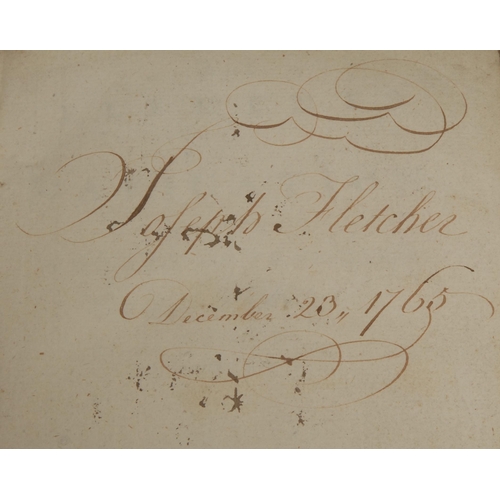 Joseph Fletcher
December 23,, 1765